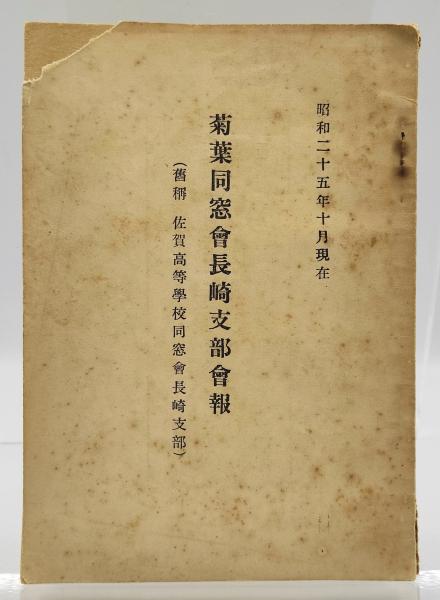 昭和二十五年十月現在
菊葉同窓會長崎支部會報
（舊稱 佐賀高等學校同窓會長崎支部）